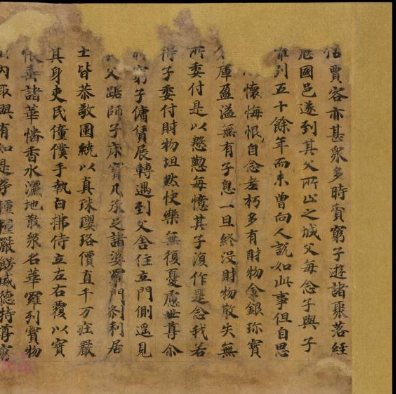 估賈客亦甚衆多時貧窮子遊諸聚落經
歷國邑遂到其父所止之城父每念子與子
離別五十餘年而未曾向人說如此事但自思
懷悔恨自念老朽多有財物金銀珍寶
庫盈溢無有子息一旦終沒財物散失無
所委付是以慇懃每憶其子復作是念我若
得子委付財物坦然快樂無復憂慮世尊尒
窮子傭賃展轉遇到父舍住立門側遙見
父踞師子床寶几承足諸婆羅門剎利居
士皆恭敬圍繞以真珠瓔珞價直千万莊嚴
其身吏民僮僕手執白拂侍立左右覆以寶
帳垂諸華幡香水灑地散衆名華羅列寶物
內取與有如是等種種嚴飾威德特尊窮